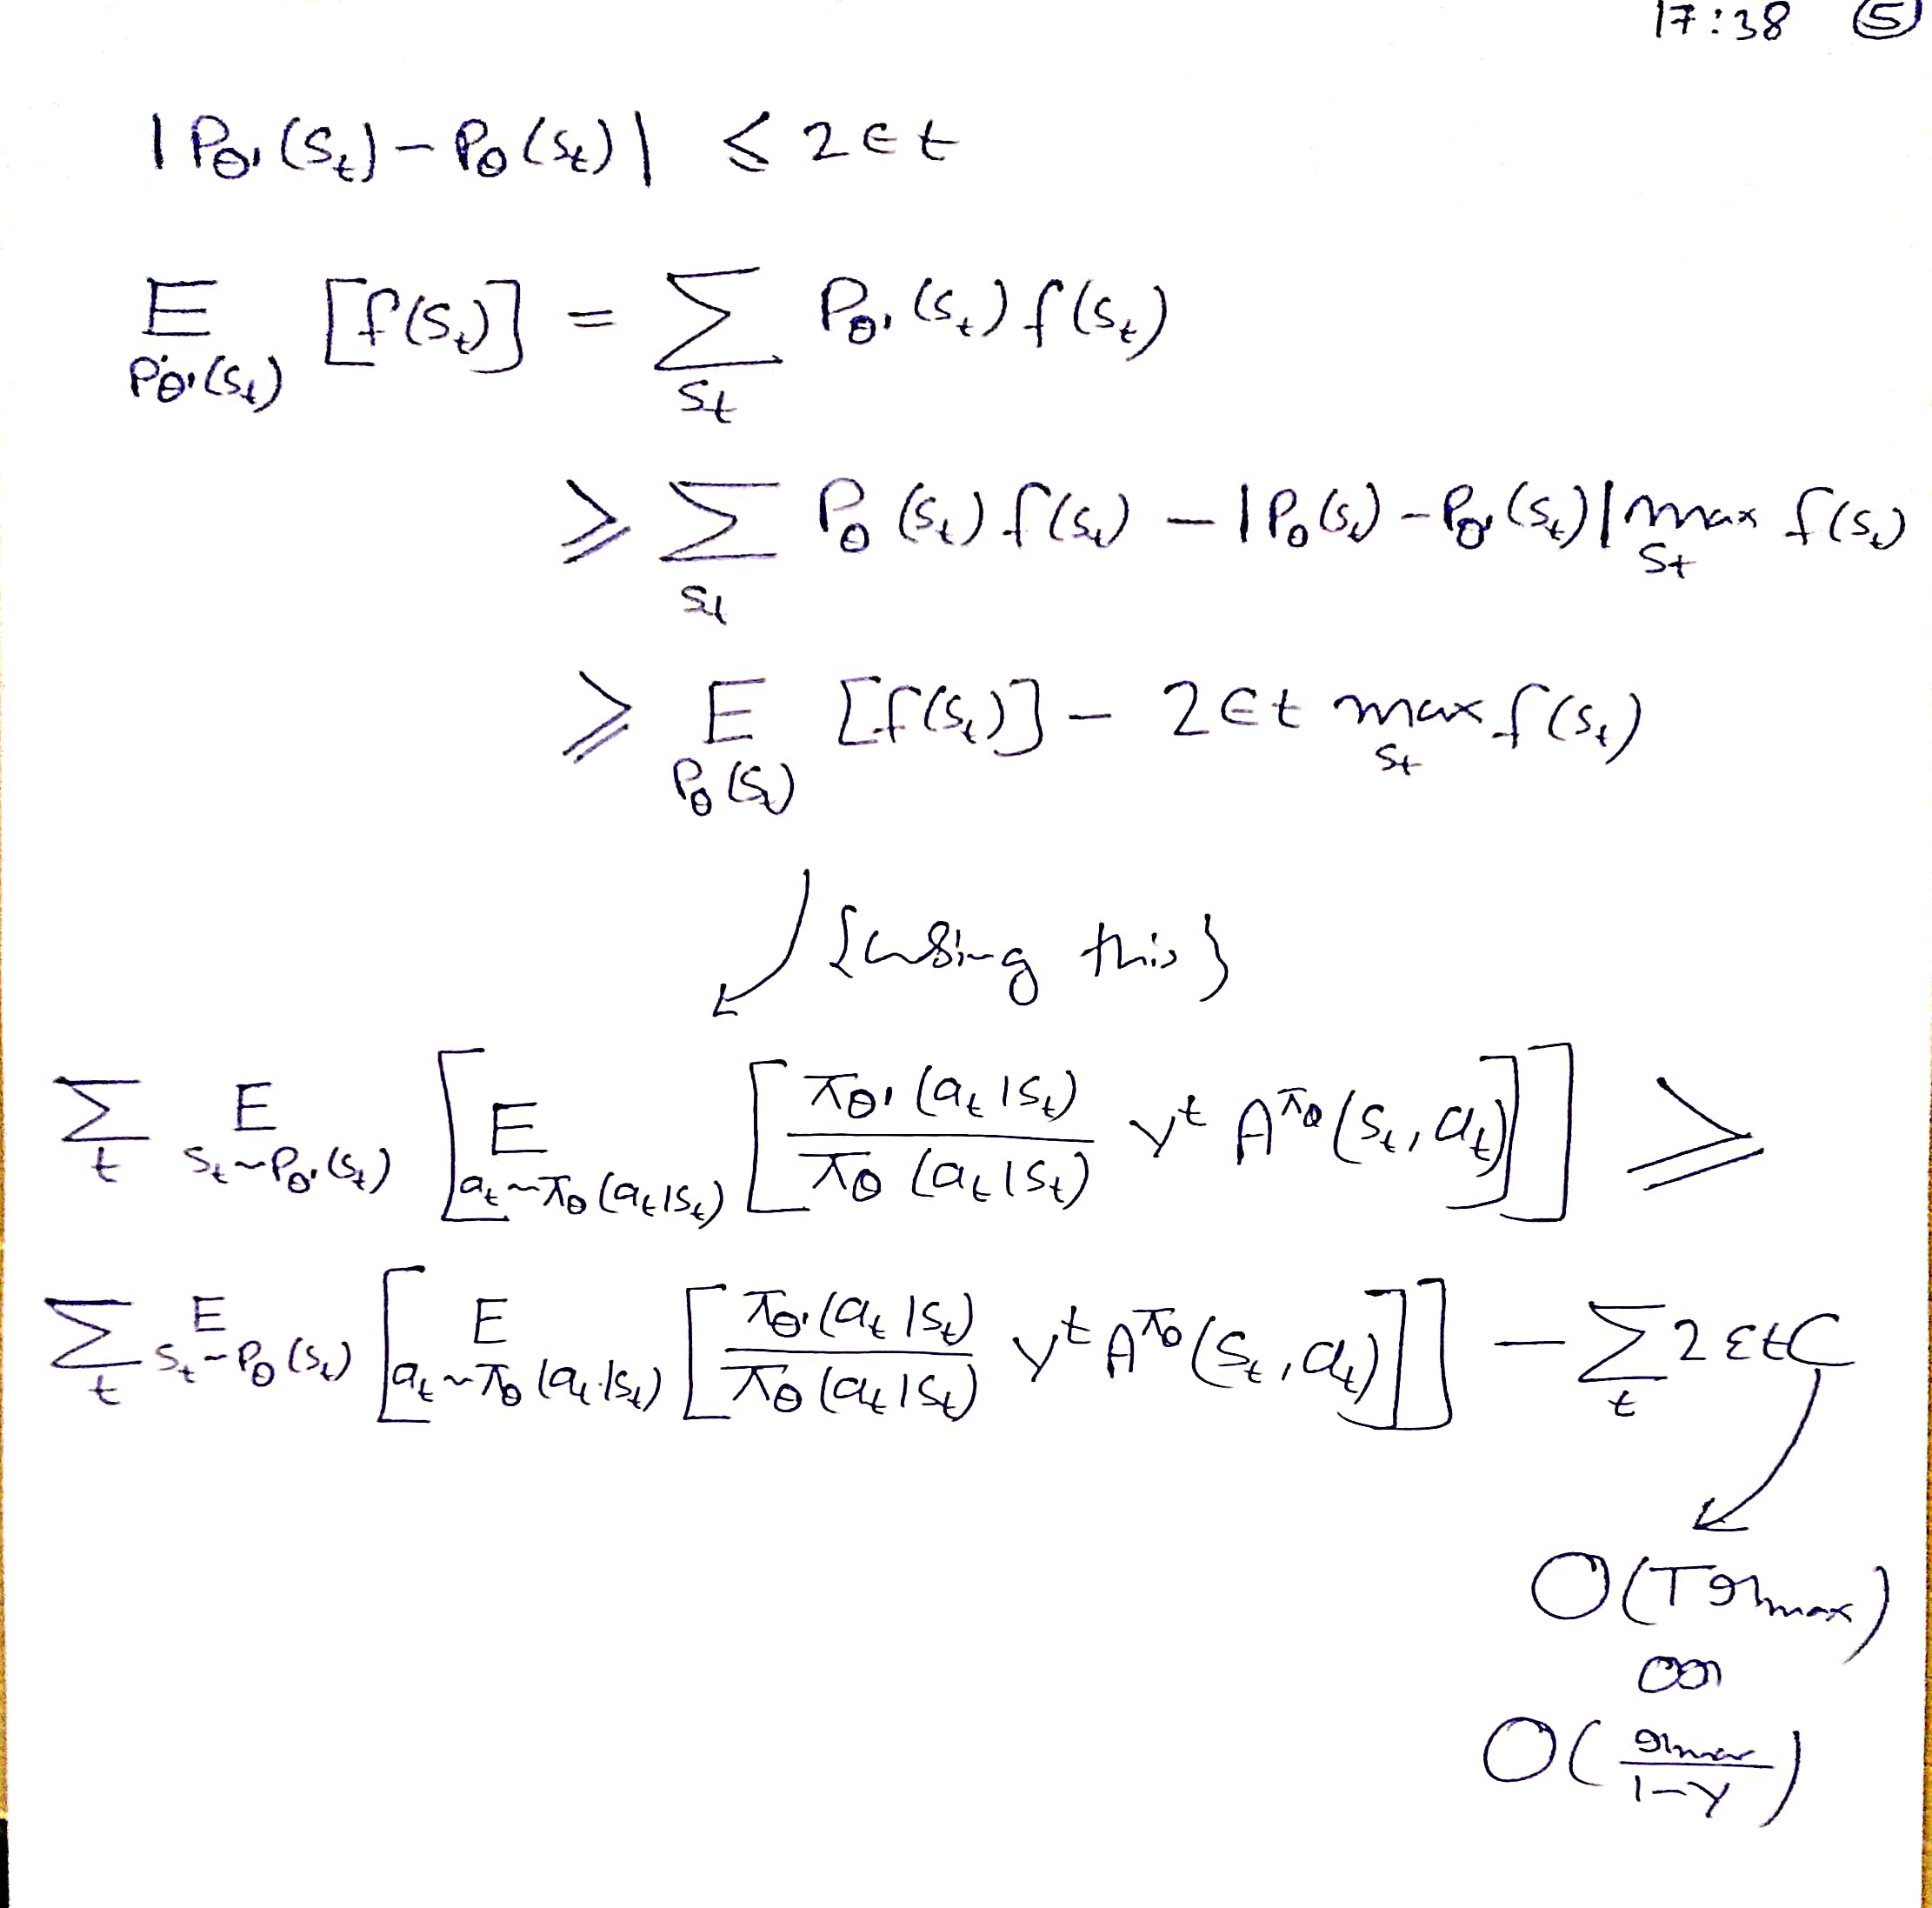 17:38 ⑤
|P_θ'(S_t) - P_θ(S_t)| ≤ 2 ϵ t
E_{P_θ'(S_t)} [f(S_t)] = Σ_{S_t} P_θ'(S_t) f(S_t)
≥ Σ_{S_t} P_θ(S_t) f(S_t) - |P_θ(S_t) - P_θ'(S_t)| max_{S_t} f(S_t)
≥ E_{P_θ(S_t)} [f(S_t)] - 2 ϵ t max_{S_t} f(S_t)
{using this}
Σ_t E_{S_t ~ P_θ'(S_t)} [ E_{a_t ~ π_θ(a_t|S_t)} [ π_θ'(a_t|S_t) / π_θ(a_t|S_t) γ^t A^{π_θ}(S_t, a_t) ] ] ≥
Σ_t E_{S_t ~ P_θ(S_t)} [ E_{a_t ~ π_θ(a_t|S_t)} [ π_θ'(a_t|S_t) / π_θ(a_t|S_t) γ^t A^{π_θ}(S_t, a_t) ] ] - Σ_t 2 ε t C
O(T r_max)
or
O( r_max / 1-γ )